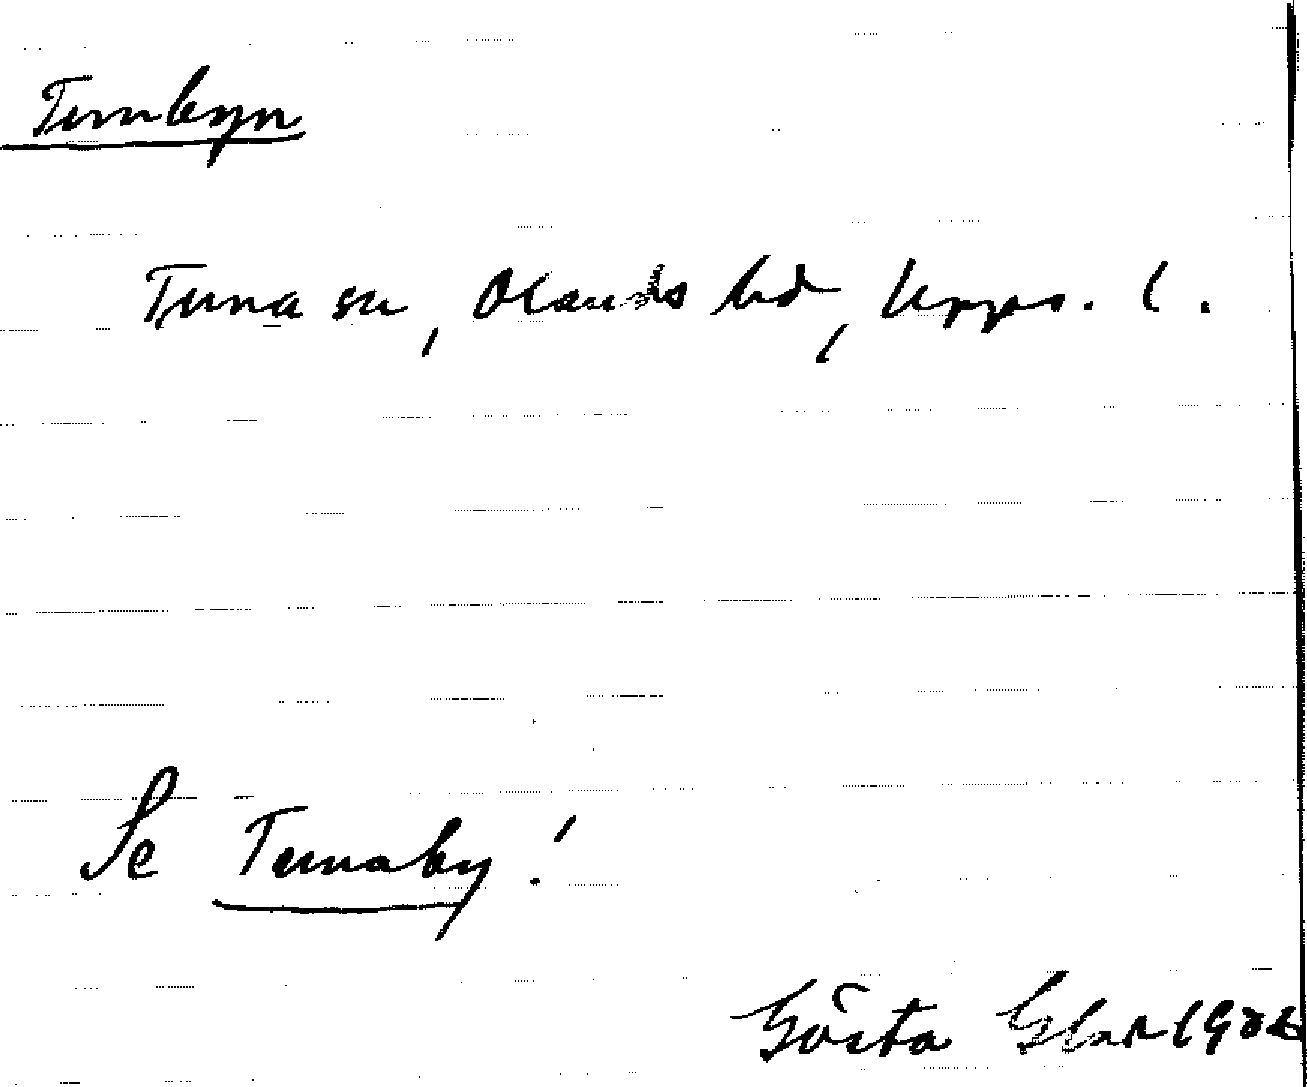 Tunbyn
Tuna sn, Olands hd, Upps. l.
Se Tunaby!
Gösta